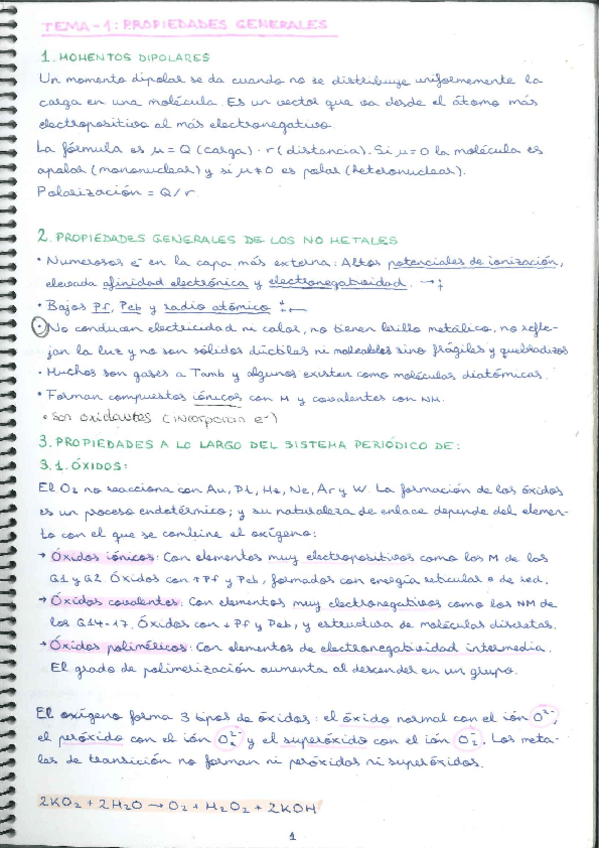 TEMA-1: PROPIEDADES GENERALES
1. MOMENTOS DIPOLARES
Un momento dipolar se da cuando no se distribuye uniformemente la
carga en una molécula. Es un vector que va desde el átomo más
electropositivo al más electronegativo
La fórmula es μ = Q (carga) · r (distancia). Si μ = 0 la molécula es
apolar (mononuclear) y si μ ≠ 0 es polar (heteronuclear).
Polarización = Q/r
2. PROPIEDADES GENERALES DE LOS NO METALES
• Numerosos e- en la capa más externa: Altos potenciales de ionización,
elevada afinidad electrónica y electronegatividad. →↑
• Bajos Pf, Peb y radio atómico ↓←
• No conducen electricidad ni calor, no tienen brillo metálico, no refle-
jan la luz y no son sólidos dúctiles ni maleables sino frágiles y quebradizos
• Muchos son gases a Tamb y algunos existen como moléculas diatómicas.
• Forman compuestos iónicos con M y covalentes con NM.
• Son oxidantes (incorporan e-)
3. PROPIEDADES A LO LARGO DEL SISTEMA PERIÓDICO DE:
3.1. ÓXIDOS:
El O₂ no reacciona con Au, Pd, He, Ne, Ar y W. La formación de los óxidos
es un proceso endotérmico; y su naturaleza de enlace depende del elemen-
to con el que se combine el oxígeno:
→ Óxidos iónicos: Con elementos muy electropositivos como los M de los
G1 y G2. Óxidos con ↑Pf y Peb, formados con energía reticular o de red.
→ Óxidos covalentes: Con elementos muy electronegativos como los NM de
los G14-17. Óxidos con ↓Pf y Peb, y estructura de moléculas discretas.
→ Óxidos poliméricos: Con elementos de electronegatividad intermedia.
El grado de polimerización aumenta al descender en un grupo.
El oxígeno forma 3 tipos de óxidos: el óxido normal con el ión O²⁻,
el peróxido con el ión O₂²⁻ y el superóxido con el ión O₂⁻. Los meta-
les de transición no forman ni peróxidos ni superóxidos.
2KO₂ + 2H₂O → O₂ + H₂O₂ + 2KOH
1